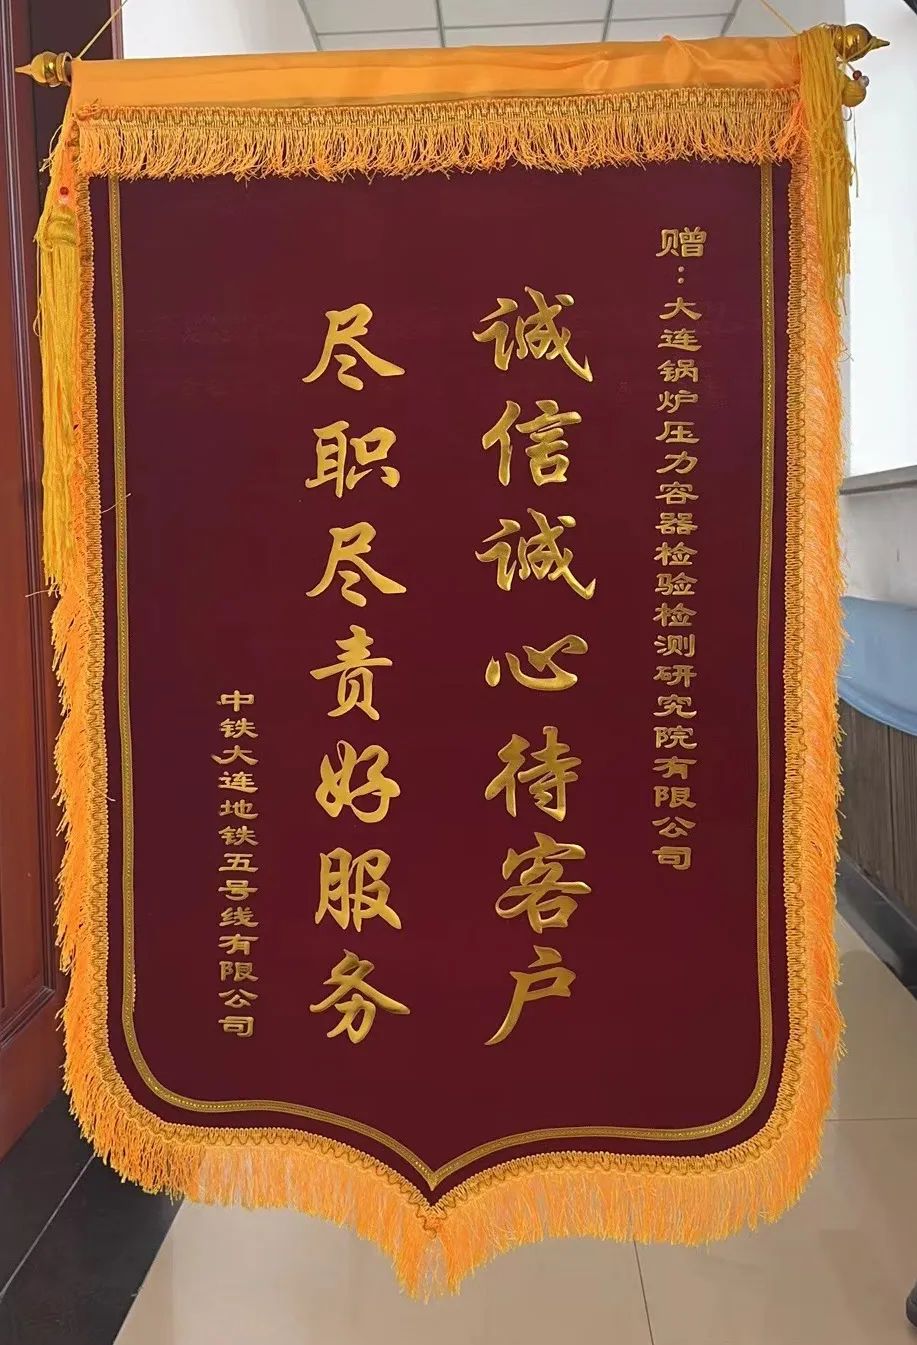 赠：大连锅炉压力容器检验检测研究院有限公司
诚信诚心待客户
尽职尽责好服务
中铁大连地铁五号线有限公司